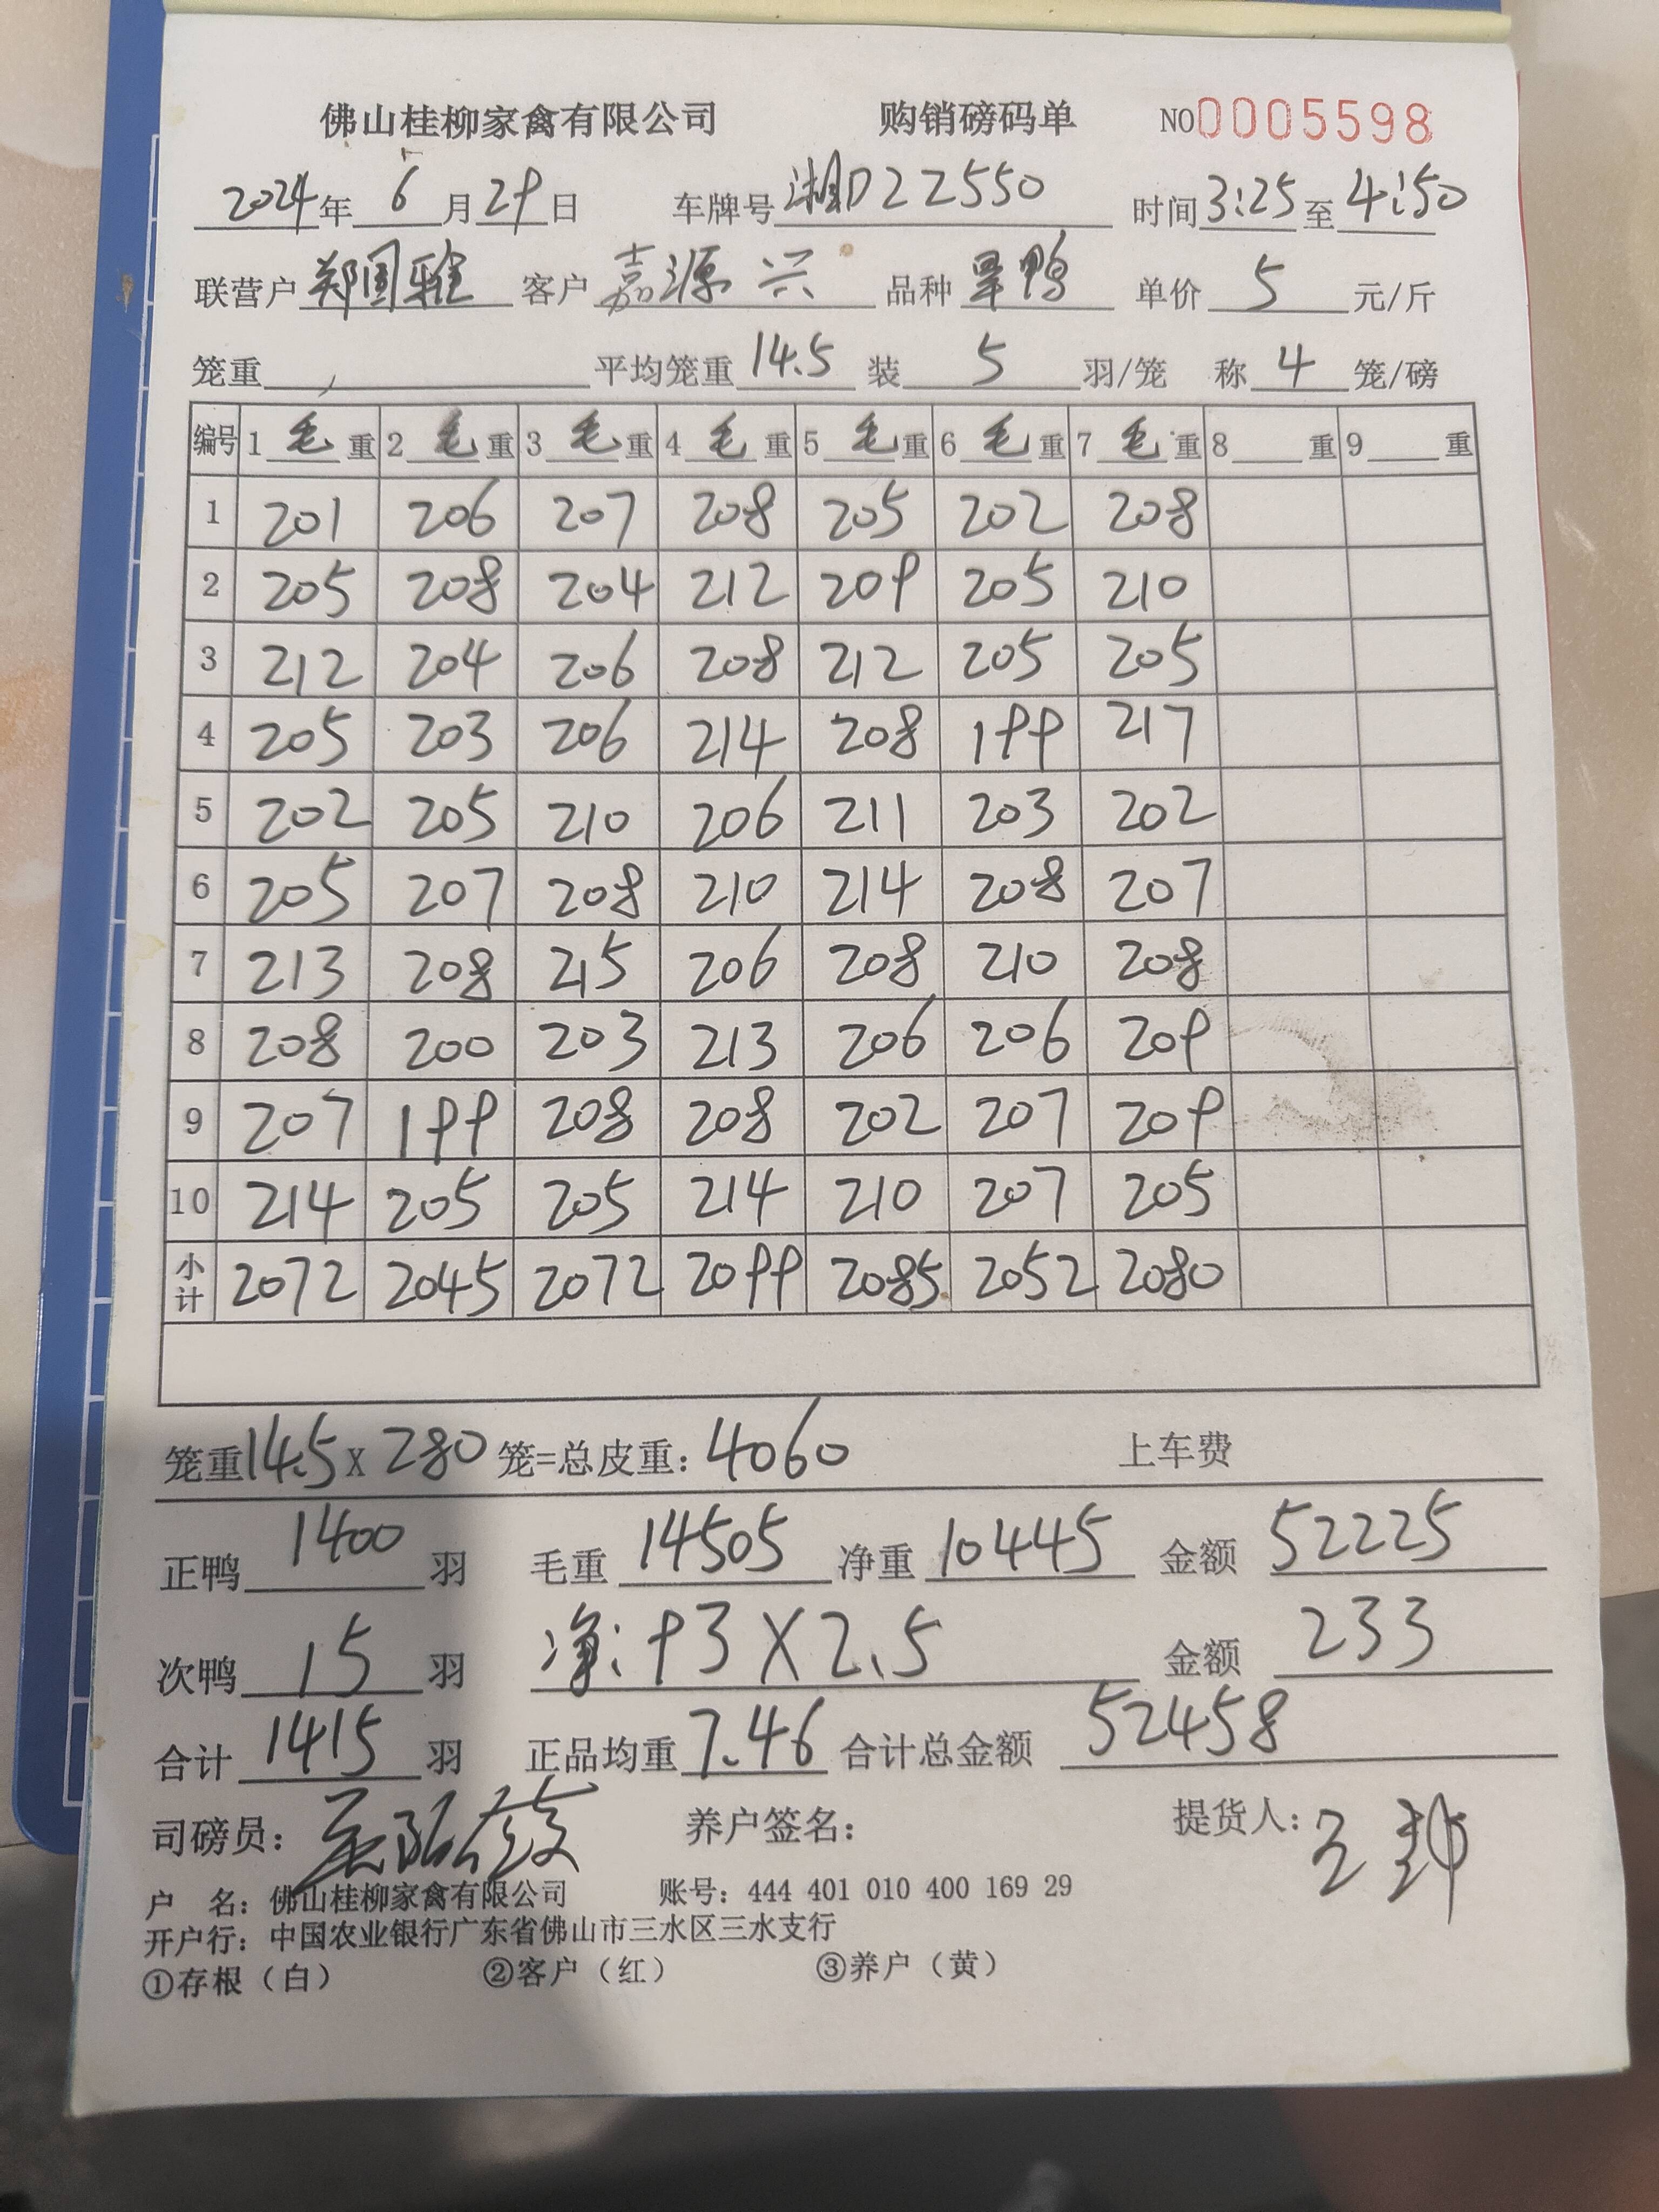 佛山桂柳家禽有限公司 购销磅码单 NO0005598
2024年 6月29日 车牌号 湘D22550 时间3:25至4:50
联营户 郑国雅 客户 嘉源兴 品种 旱鸭 单价 5 元/斤
笼重 平均笼重 14.5 装 5 羽/笼 称 4 笼/磅
编号 1 毛 重 2 毛 重 3 毛 重 4 毛 重 5 毛 重 6 毛 重 7 毛 重 8 重 9 重
1 201 206 207 208 205 202 208
2 205 208 204 212 209 205 210
3 212 204 206 208 212 205 205
4 205 203 206 214 208 199 217
5 202 205 210 206 211 203 202
6 205 207 208 210 214 208 207
7 213 208 215 206 208 210 208
8 208 200 203 213 206 206 209
9 207 199 208 208 202 207 209
10 214 205 205 214 210 207 205
小计 2072 2045 2072 2099 2085 2052 2080
笼重14.5X280笼=总皮重:4060 上车费
正鸭 1400 羽 毛重 14505 净重 10445 金额 52225
次鸭 15 羽 净:93X2.5 金额 233
合计 1415 羽 正品均重 7.46 合计总金额 52458
司磅员: 养户签名: 提货人:
户 名:佛山桂柳家禽有限公司 账号:444 401 010 400 169 29
开户行:中国农业银行广东省佛山市三水区三水支行
①存根(白) ②客户(红) ③养户(黄)